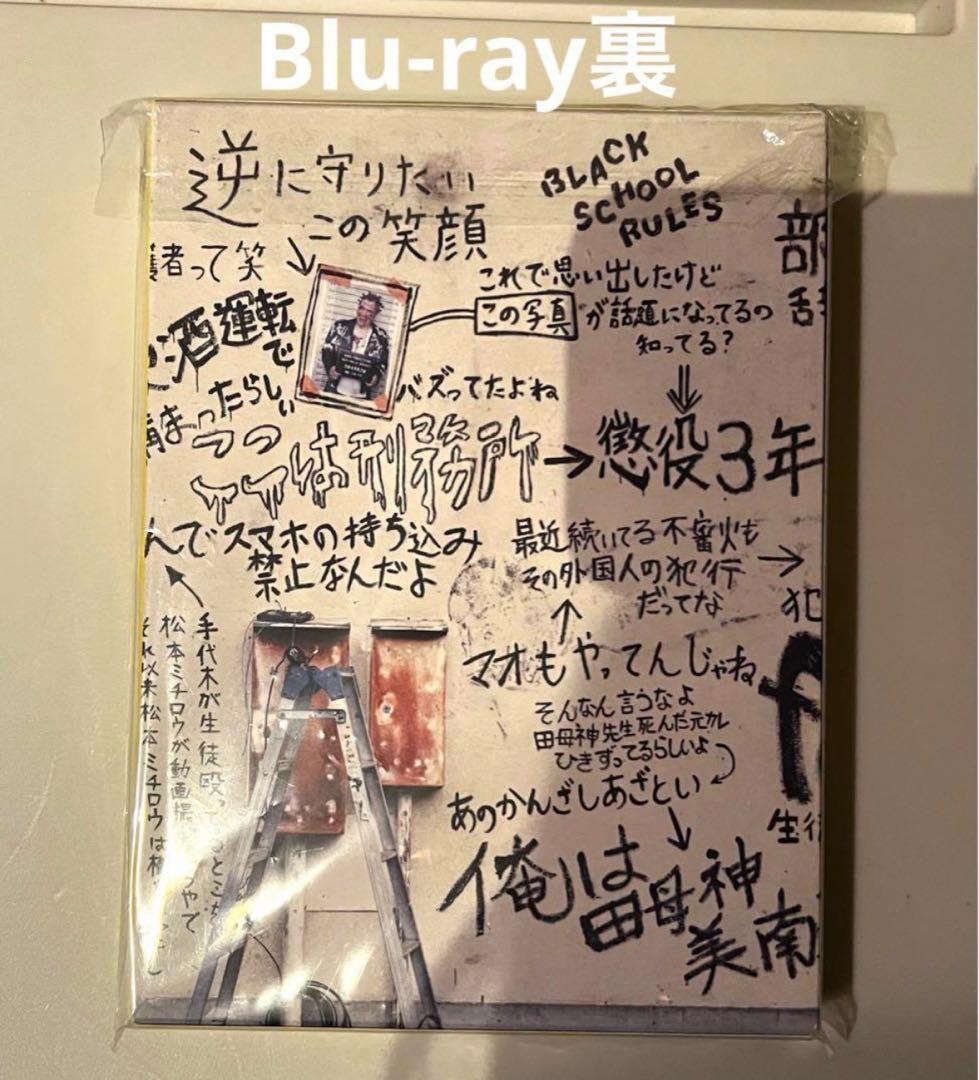 Blu-ray裏
逆に守りたい
この笑顔
BLACK
SCHOOL
RULES
者って笑
酒運転で
捕まったらしい
これで思い出したけど
この写真が話題になってるの
知ってる?
バズってたよね
は刑務所→懲役3年
んでスマホの持ち込み
禁止なんだよ
最近続いてる不審火も
その外国人の犯行
だってな
犯
マオもやってんじゃね
そんなん言うなよ
田母神先生死んだ元カレ
ひきずってるらしいよ
あのかんざしあざとい
俺は
田母神
美南
手代木が生徒殴っ
松本ミチロウが動画撮
それ以来松本ミチロウは